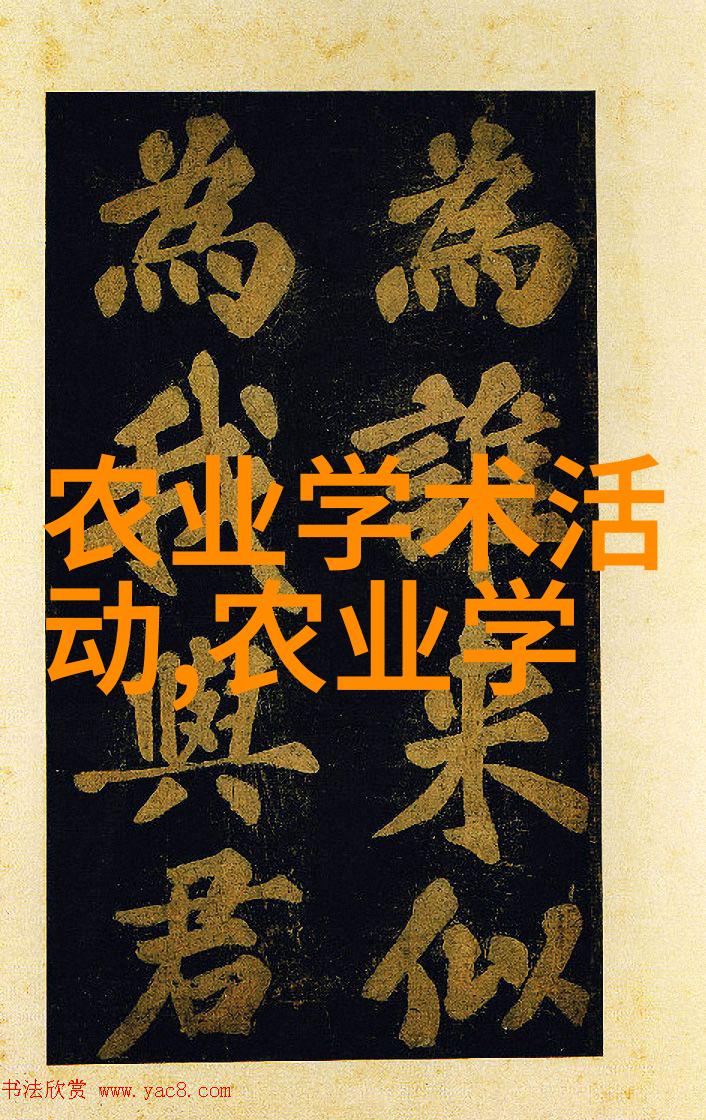 為誰来似
為我與君
农业学术活
动,农业学
书法欣赏 www.yac8.com